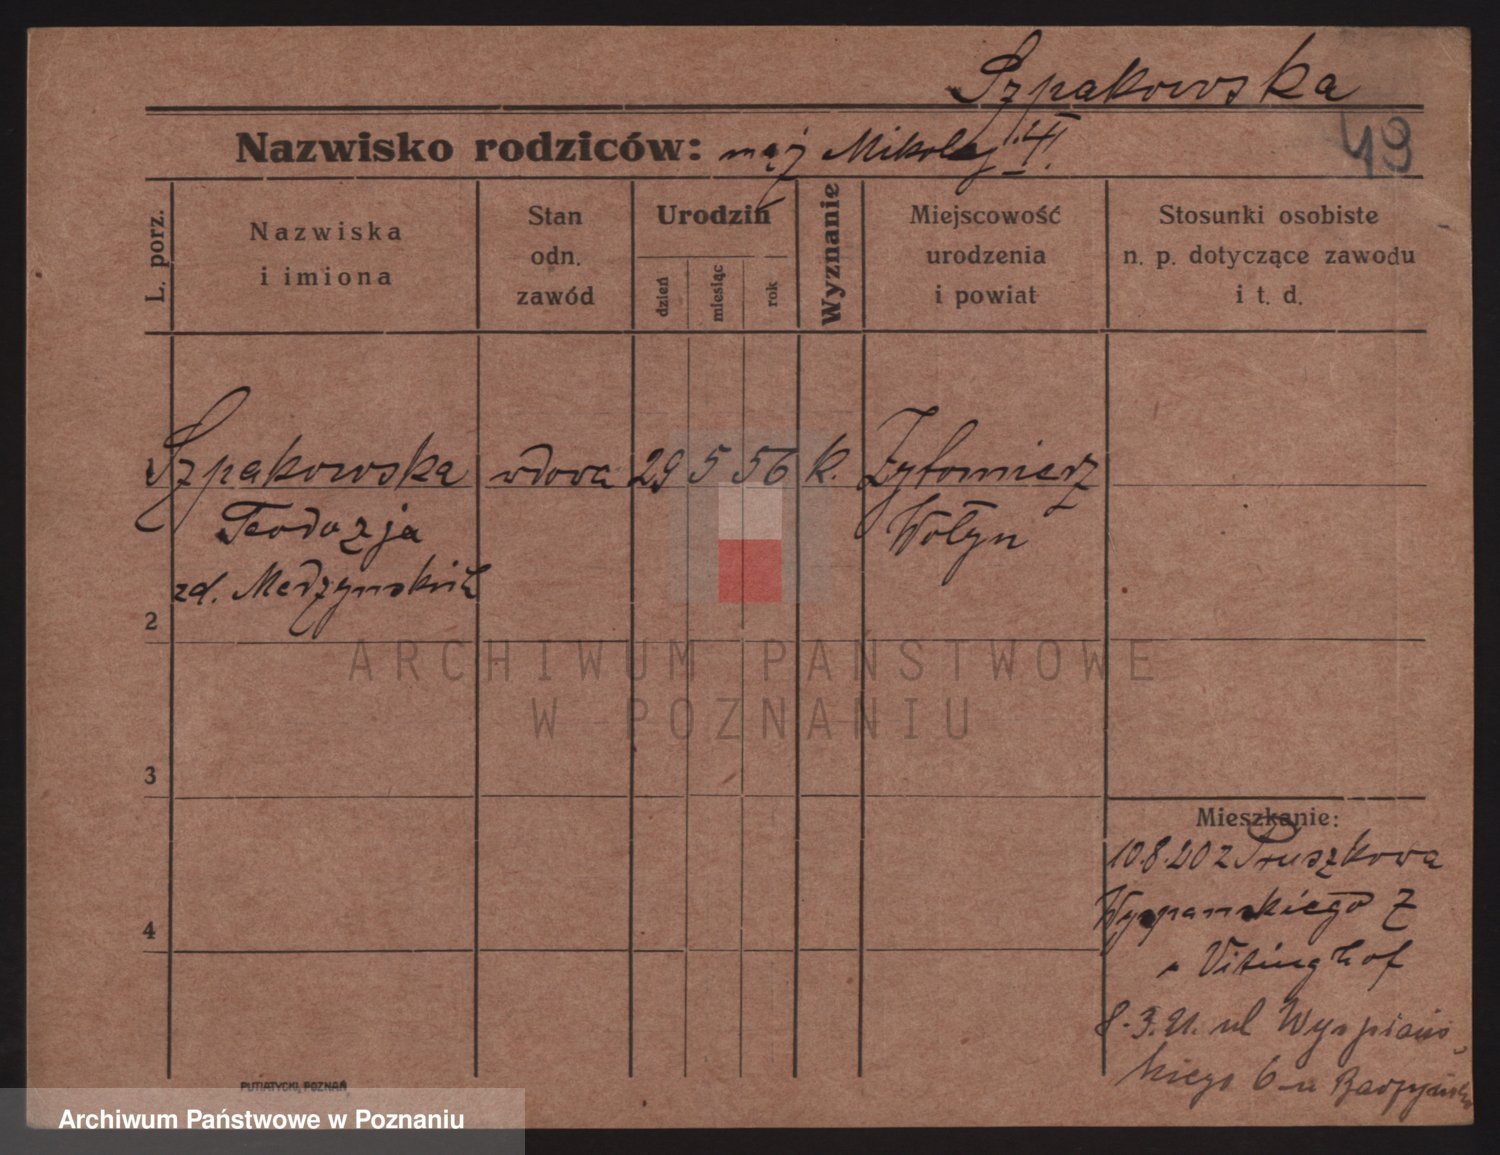 Szpakowska
Nazwisko rodziców: mąż Mikołaj
49
L. porz.
Nazwiska
i imiona
Stan
odn.
zawód
Urodzin
dzień
miesiąc
rok
Wyznanie
Miejscowość
urodzenia
i powiat
Stosunki osobiste
n. p. dotyczące zawodu
i t. d.
Szpakowska wdowa 29 5 56 k. Żytomierz
Teodozja Wołyn
zd. Medzynskich
2
3
4
Mieszkanie:
10.8.20 z Pruszkowa
Wyspanskiego 7
Vitinghof
8.3.21. ul Wyspiańs-
kiego 6
PUTIATYCKI, POZNAŃ
ARCHIWUM PAŃSTWOWE
W POZNANIU
Archiwum Państwowe w Poznaniu